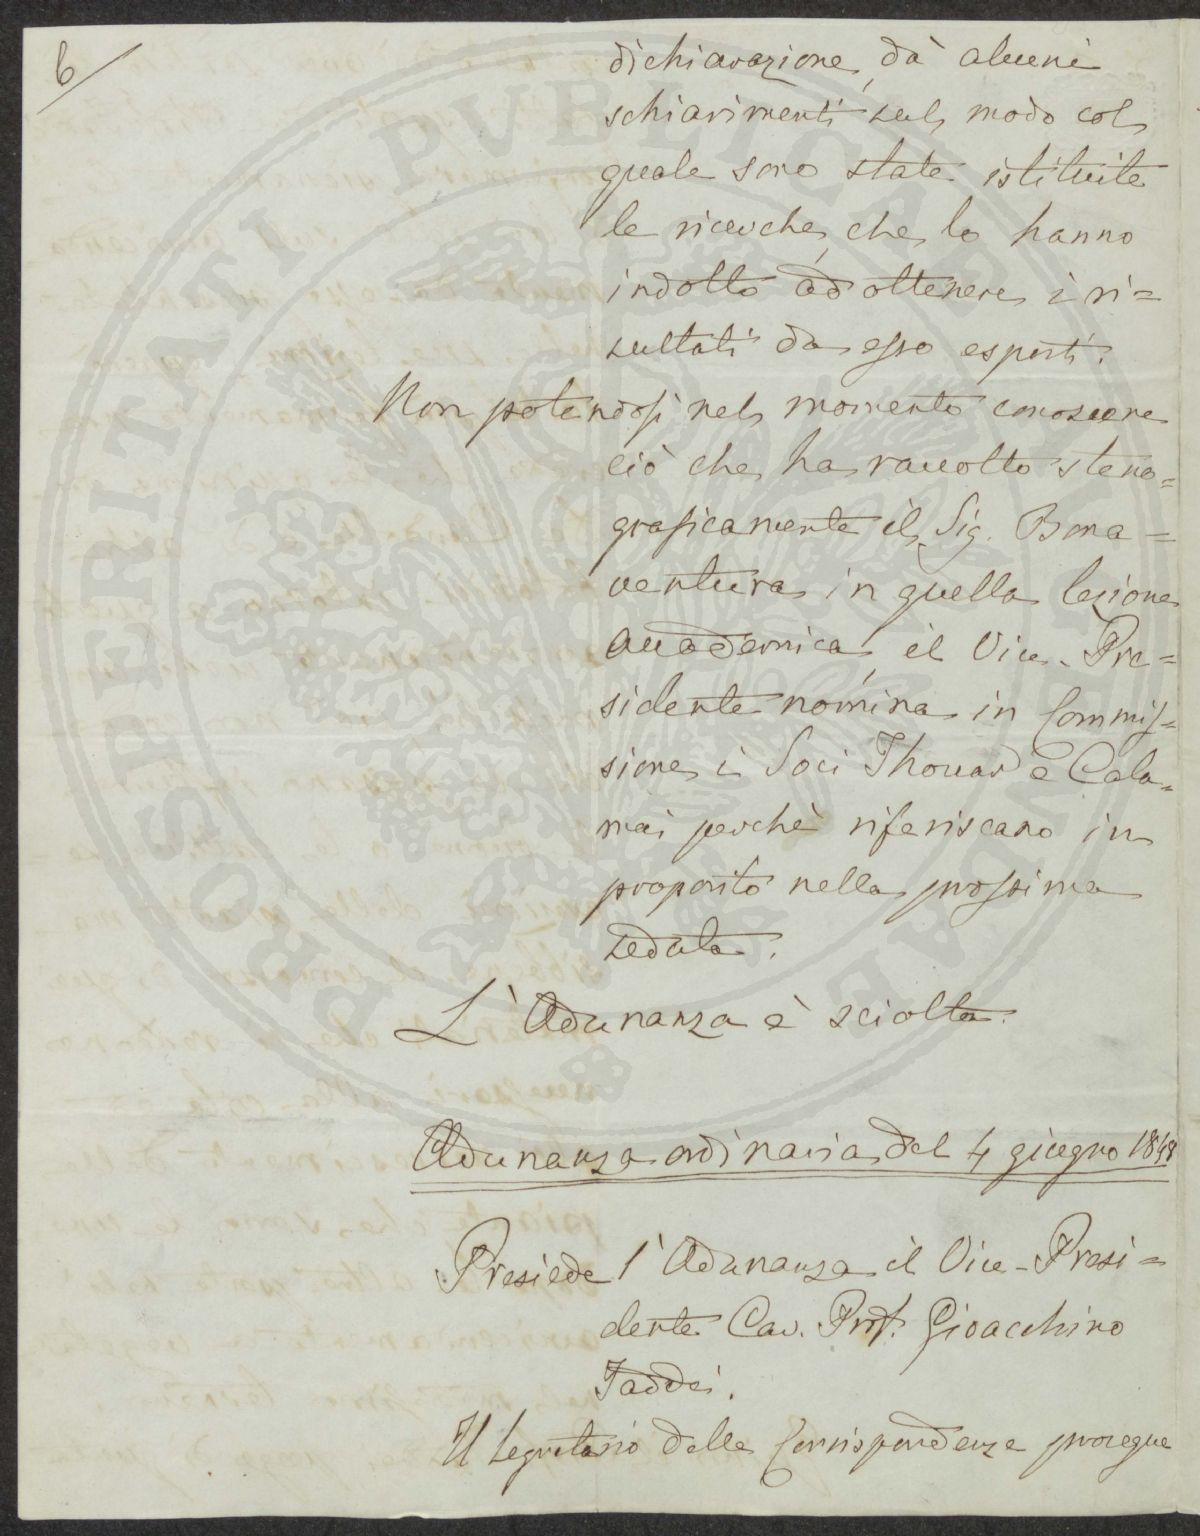 6
dichiarazione, dà alcuni
schiarimenti sul modo col
quale sono state istituite
le ricerche, che lo hanno
indotto ad ottenere i ri=
sultati da esso esposti.
Non potendosi nel momento conoscere
ciò che ha raccolto steno=
graficamente il Sig. Bona=
ventura in quella lezione
accademica, il Vice-Pre=
sidente nomina in Commis=
sione i Soci Thouar e Cala=
mai perchè riferiscano in
proposito nella prossima
seduta.
L'Adunanza è sciolta.
Adunanza ordinaria del 4 giugno 1848
Presiede l'Adunanza il Vice-Presi=
dente Cav. Prof. Gioacchino
Taddei.
Il Segretario delle Corrispondenze prosegue
PROSPERITATI PVBLICAE AVGENDAE